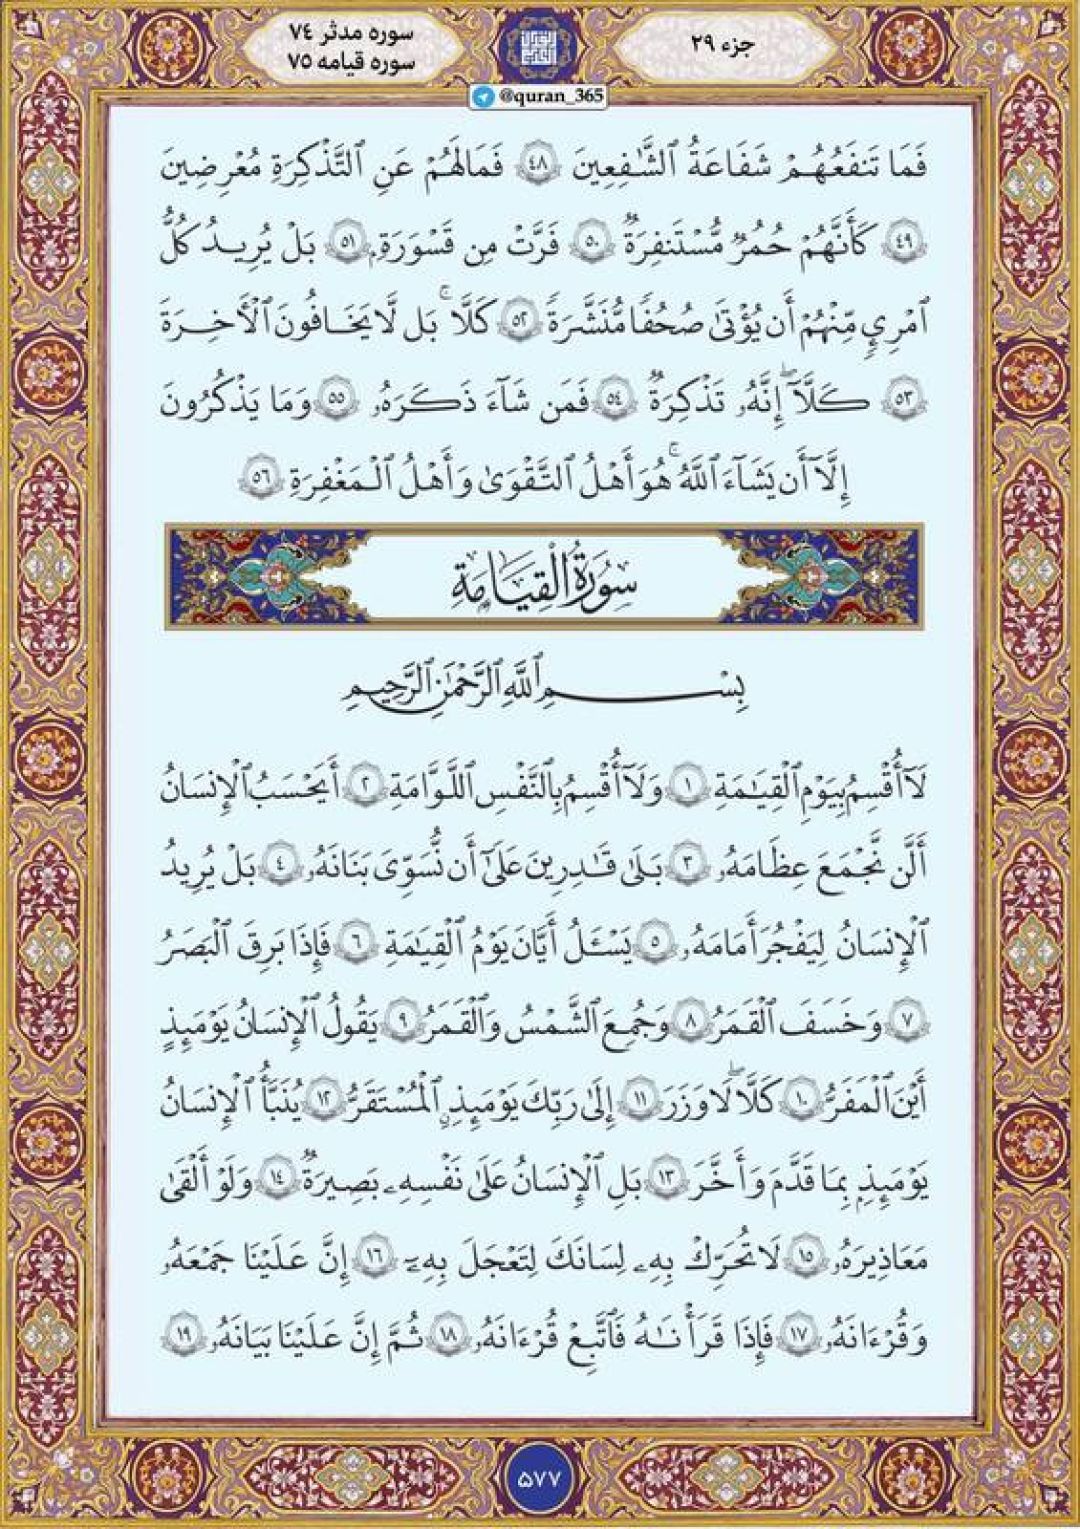 جزء ۲۹
سوره مدثر ۷۴
سوره قیامه ۷۵
@quran_365
فَمَا تَنفَعُهُمْ شَفَاعَةُ ٱلشَّٰفِعِينَ ٤٨ فَمَالَهُمْ عَنِ ٱلتَّذْكِرَةِ مُعْرِضِينَ
٤٩ كَأَنَّهُمْ حُمُرٌ مُّسْتَنفِرَةٌ ٥٠ فَرَّتْ مِن قَسْوَرَةٍ ٥١ بَلْ يُرِيدُ كُلُّ
ٱمْرِئٍ مِّنْهُمْ أَن يُؤْتَىٰ صُحُفًا مُّنَشَّرَةً ٥٢ كَلَّا ۚ بَل لَّا يَخَافُونَ ٱلْأَخِرَةَ
٥٣ كَلَّآ ۖ إِنَّهُۥ تَذْكِرَةٌ ٥٤ فَمَن شَآءَ ذَكَرَهُۥ ٥٥ وَمَا يَذْكُرُونَ
إِلَّآ أَن يَشَآءَ ٱللَّهُ ۚ هُوَ أَهْلُ ٱلتَّقْوَىٰ وَأَهْلُ ٱلْمَغْفِرَةِ ٥٦
سُورَةُ الْقِيَامَةِ
بِسْمِ ٱللَّهِ ٱلرَّحْمَٰنِ ٱلرَّحِيمِ
لَآ أُقْسِمُ بِيَوْمِ ٱلْقِيَٰمَةِ ١ وَلَآ أُقْسِمُ بِٱلنَّفْسِ ٱللَّوَّامَةِ ٢ أَيَحْسَبُ ٱلْإِنسَانُ
أَلَّن نَّجْمَعَ عِظَامَهُۥ ٣ بَلَىٰ قَٰدِرِينَ عَلَىٰٓ أَن نُّسَوِّىَ بَنَانَهُۥ ٤ بَلْ يُرِيدُ
ٱلْإِنسَانُ لِيَفْجُرَ أَمَامَهُۥ ٥ يَسْـَٔلُ أَيَّانَ يَوْمُ ٱلْقِيَٰمَةِ ٦ فَإِذَا بَرِقَ ٱلْبَصَرُ
٧ وَخَسَفَ ٱلْقَمَرُ ٨ وَجُمِعَ ٱلشَّمْسُ وَٱلْقَمَرُ ٩ يَقُولُ ٱلْإِنسَانُ يَوْمَئِذٍ
أَيْنَ ٱلْمَفَرُّ ١٠ كَلَّا ۖ لَا وَزَرَ ١١ إِلَىٰ رَبِّكَ يَوْمَئِذٍ ٱلْمُسْتَقَرُّ ١٢ يُنَبَّأُ ٱلْإِنسَانُ
يَوْمَئِذٍۭ بِمَا قَدَّمَ وَأَخَّرَ ١٣ بَلِ ٱلْإِنسَانُ عَلَىٰ نَفْسِهِۦ بَصِيرَةٌ ١٤ وَلَوْ أَلْقَىٰ
مَعَاذِيرَهُۥ ١٥ لَا تُحَرِّكْ بِهِۦ لِسَانَكَ لِتَعْجَلَ بِهِۦٓ ١٦ إِنَّ عَلَيْنَا جَمْعَهُۥ
وَقُرْءَانَهُۥ ١٧ فَإِذَا قَرَأْنَٰهُ فَٱتَّبِعْ قُرْءَانَهُۥ ١٨ ثُمَّ إِنَّ عَلَيْنَا بَيَانَهُۥ ١٩
۵۷۷